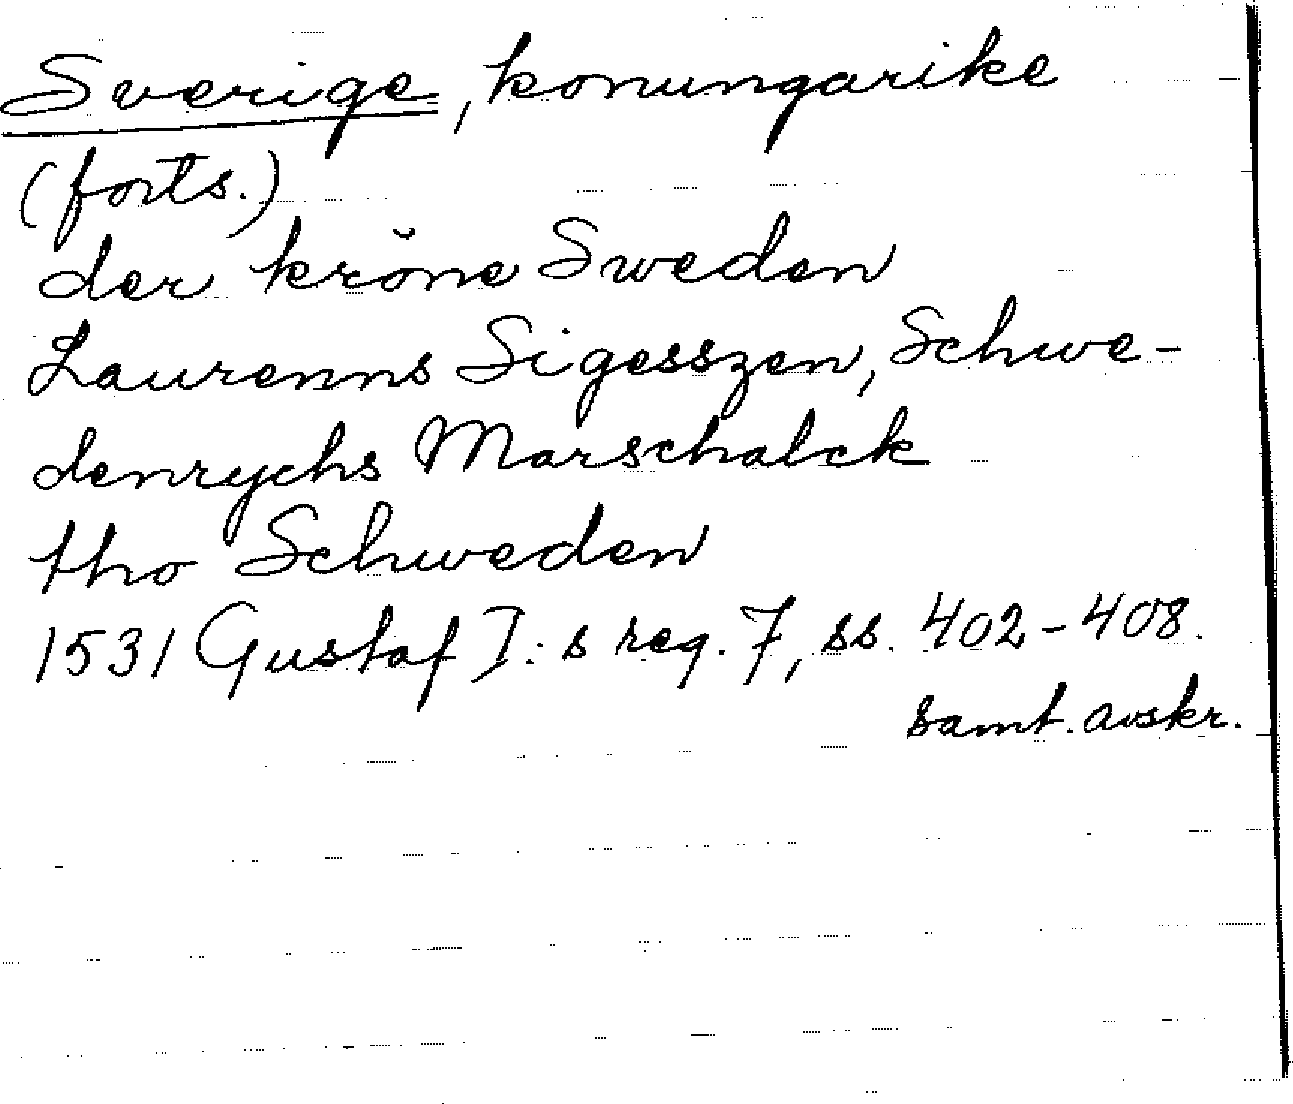 Sverige, konungarike
(forts.)
der krŏne Sweden
Laurenns Sigesszen, Schwe-
denrychs Marschalck
tho Schweden
1531 Gustaf I:s reg. 7, ss. 402-408.
samt. avskr.